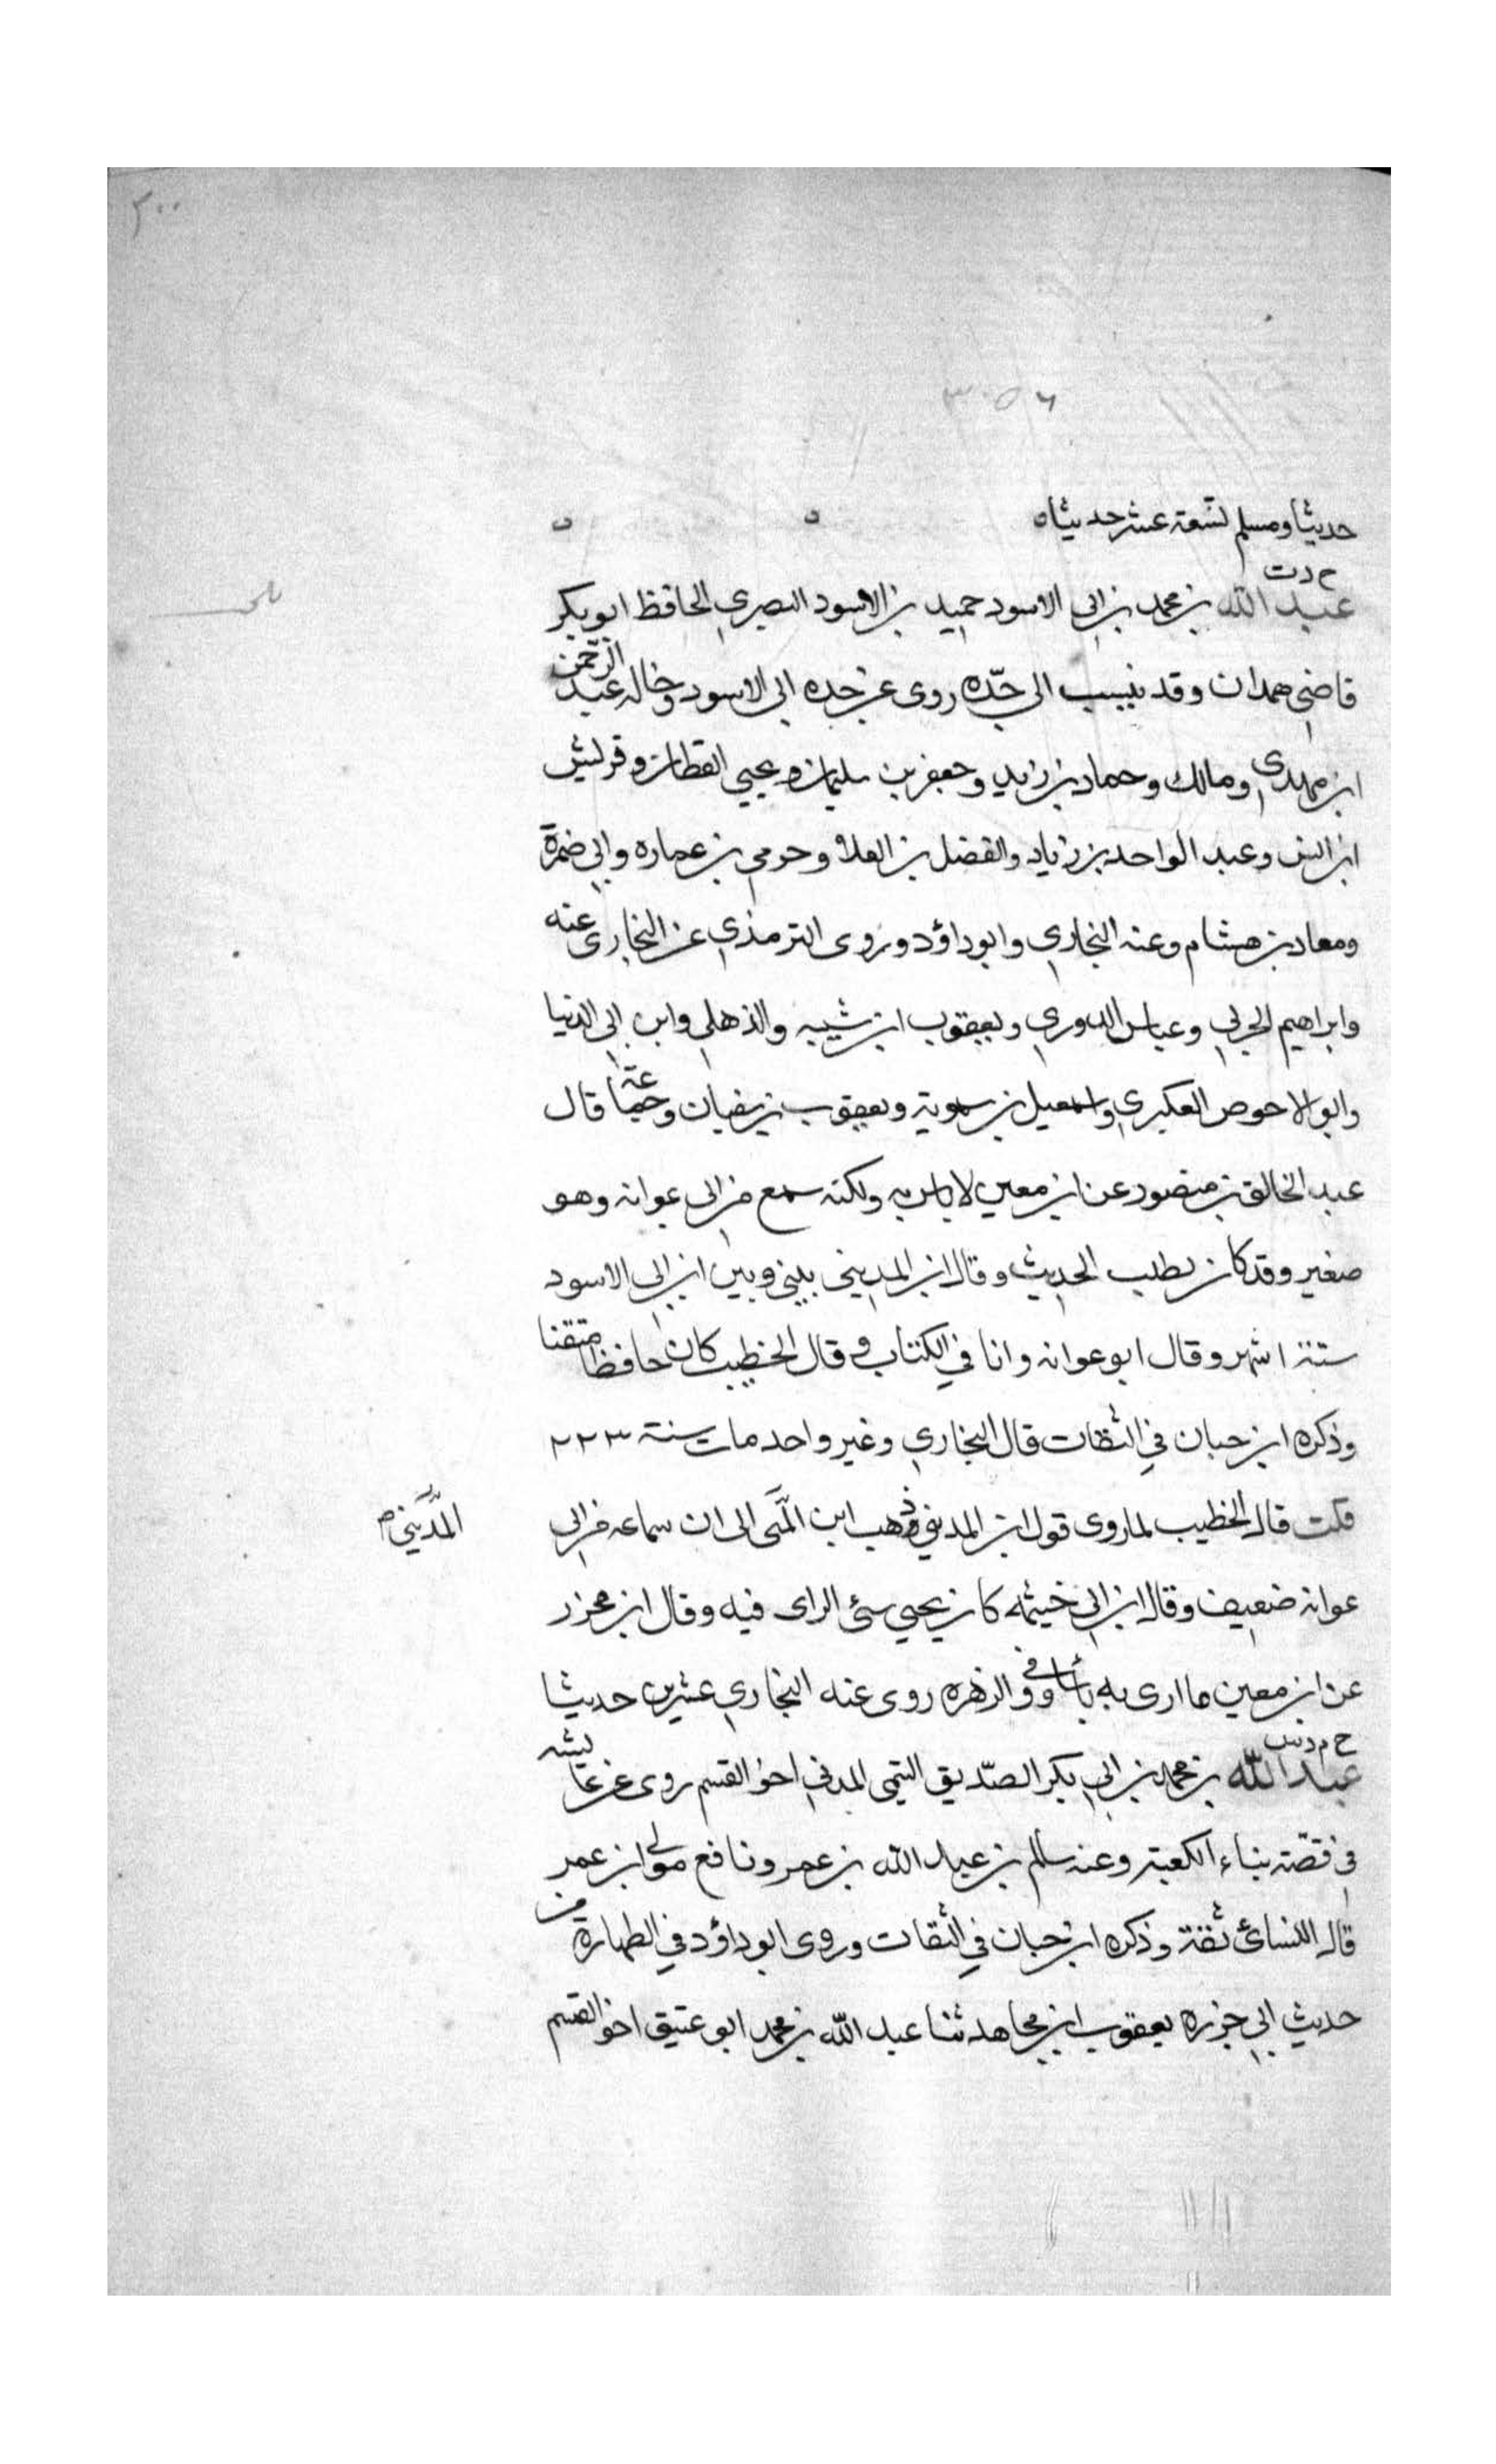 ٣٠٠
٣٠٥٦
حديثا ومسلم تسعة عشر حديثا ه
خ د ت
عبد الله بن محمد بن ابي الاسود حميد بن الاسود البصري الحافظ ابو بكر
قاضي همدان وقد ينسب الى جدّه روى عن جده ابي الاسود وخاله عبد الرحمن
ابن مهدي ومالك وحماد بن زيد وجعفر بن سليمان ويحيى القطان وقريش
ابن انس وعبد الواحد بن زياد والفضل بن العلا وحرمي بن عماره وابي ضمرة
ومعاد بن هشام وعنه البخاري وابو داؤد وروى الترمذي عن البخاري عنه
وابراهيم الحربي وعباس الدوري ويعقوب ابن شيبه والذهلي وابن ابي الدنيا
وابو الاحوص العكبري واسمعيل بن سموية ويعقوب بن سفيان وجماعة قال
عبد الخالق بن منصور عن ابن معين لا باس به ولكنه سمع من ابي عوانه وهو
صغير وقد كان يطلب الحديث وقال ابن المديني بيني وبين ابن ابي الاسود
ستة اشهر وقال ابو عوانه وانا في الكتاب وقال الخطيب كان حافظا متقنا
وذكره ابن حبان في الثقات قال البخاري وغير واحد مات سنة ٢٢٣
قلت قال الخطيب لما روى قول ابن المديني ذهب ابن المَّى الى ان سماعه من ابي
المَّدَيني ص
عوانه ضعيف وقال ابن ابي خيثمه كان يحيي سئ الراى فيه وقال ابن محرز
عن ابن معين ما ارى به بأسا وفي الزهره روى عنه البخاري عشرين حديثا
خ م د س
عبد الله بن محمد بن ابي بكر الصّديق التيمي المدني اخو القسم روى عن عايشه
في قصّة بناء الكعبة وعنه سالم بن عبد الله بن عمر ونافع مولى ابن عمر
قال النسائ ثقة وذكره ابن حبان في الثقات وروى ابو داؤد في الطهارة من
حديث ابي حزره يعقوب ابن مجاهد ثنا عبد الله بن محمد ابو عتيق اخو القسم